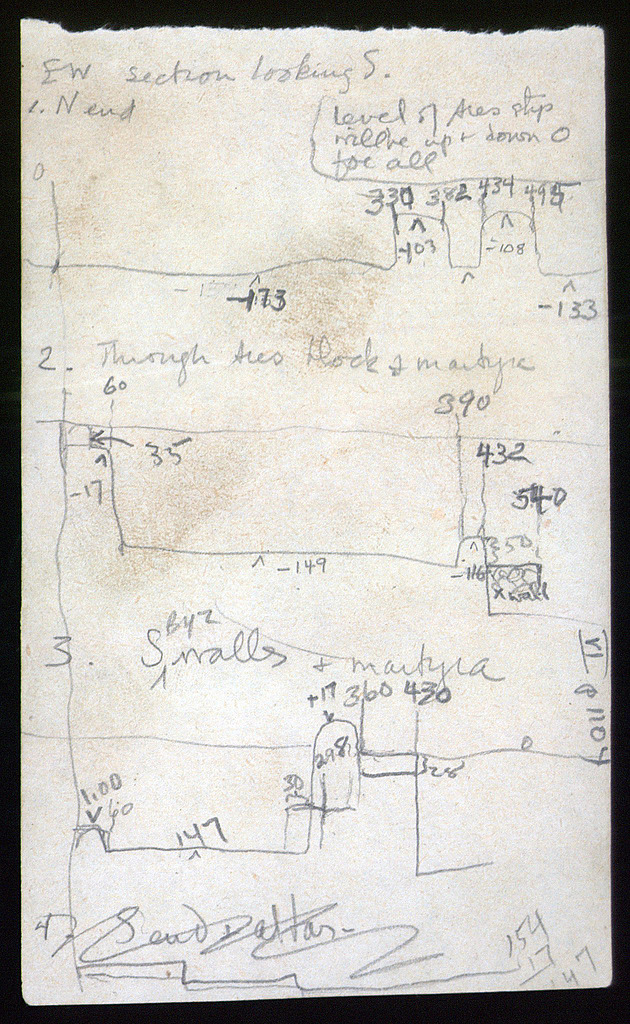 EW section looking S.
1. N end
level of Ares step
will be up + down 0
for all
0
330 382 434 495
-103 -108
-173 -133
2. Through Ares block & martyra
60
390
35
432
-17
540
350
-149
-116
x wall
By 2
3. S walls + martyra
+17 360 430
0
298
28
1.00
60
30
147
4.
154
17
147
VI @ 1104